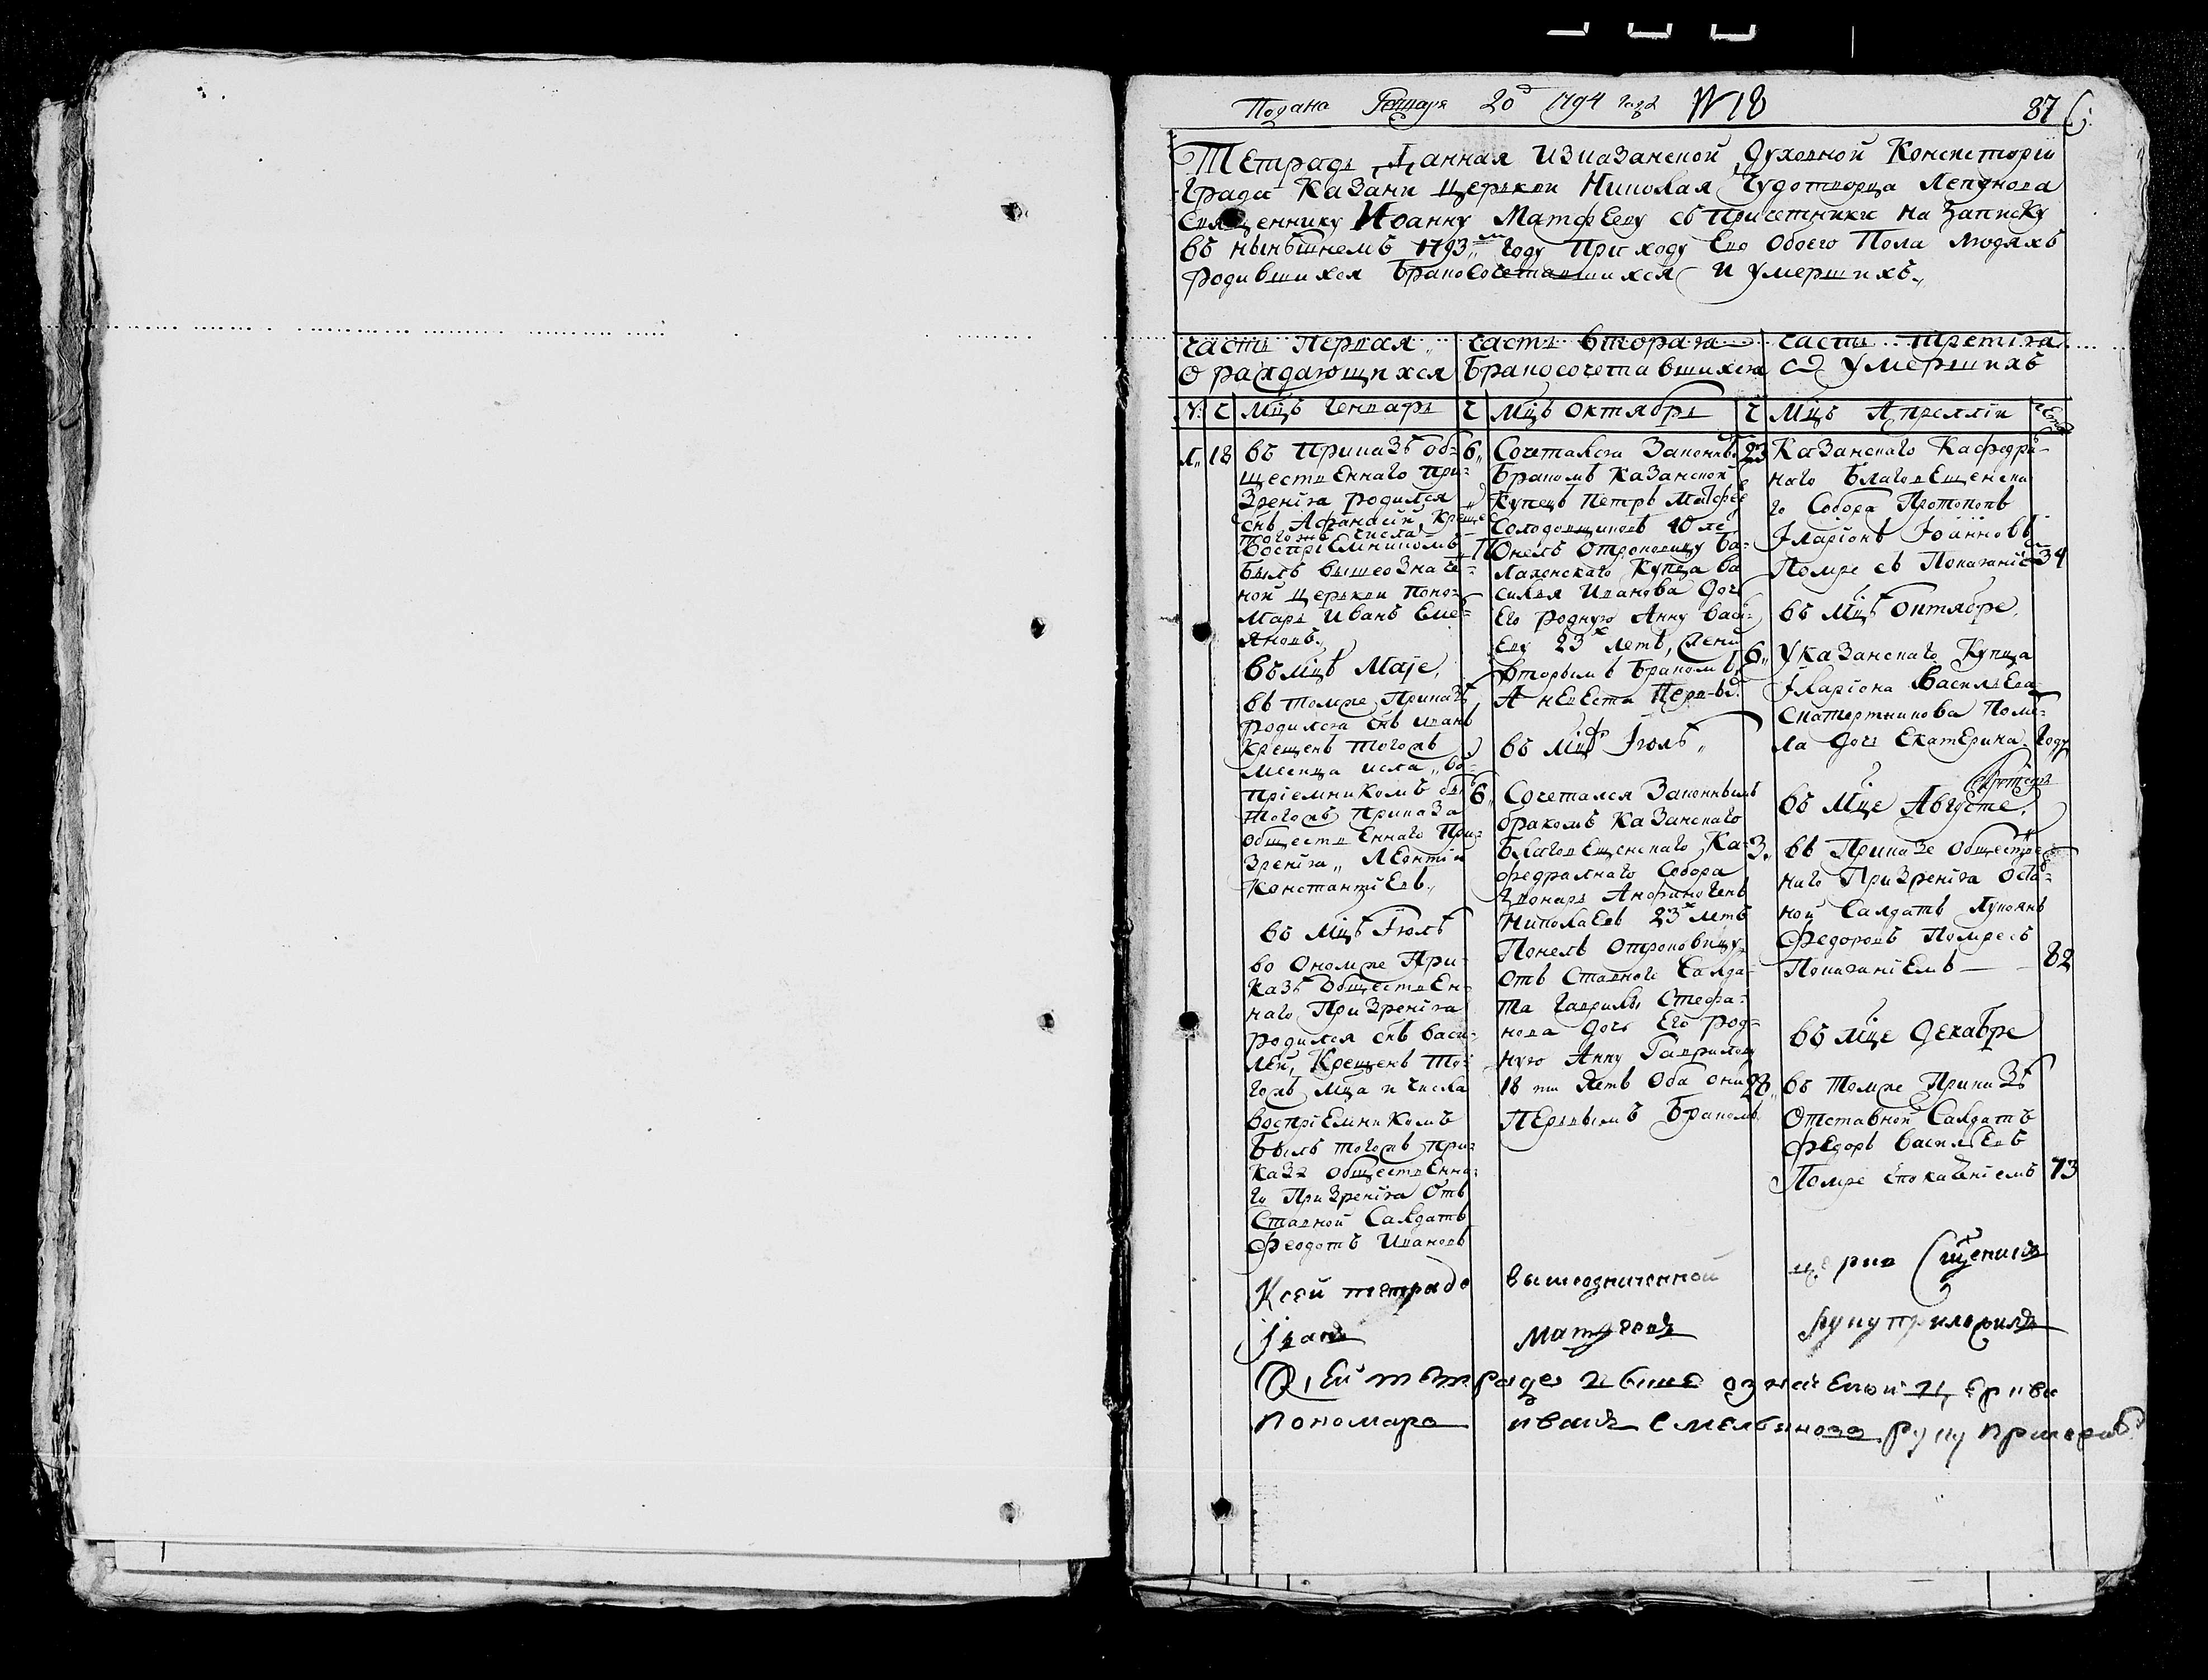 Подана Генваря 20д 1794 года №18 87
Тетрадь Данная изказанской Духовной Консистории
града Казани церькви Николая Чудотворца Ляпунова
Священнику Иоанну Матфееву съ Причетники на записку
въ нынѣшнемъ 1793м году Приходу Его обоего Пола людяхъ
родившихся Бракосочетавшихся и умершихъ.,
часть Первая
о раждающихся
№ ч мцъ Генварь
1., 18 въ Приказѣ об=
щественнаго При=
зрения родился
снъ Афанасий, креще
того жъ числа
Восприемникомъ
былъ вышеозначе=
ной церькви Поно=
марь Иванъ Еме=
льяновъ.,
въ мцѣ Маие,
въ томже Приказѣ
родился снъ Иванъ
крещенъ тогожъ
месеца исла., во=
приемникомъ былъ
тогожъ Приказа
общественнаго При=
зрения., Леонтий
Константиевъ.,
въ мцѣ Июлѣ
во ономже При=
казѣ общественна
наго Призрения
родился снъ васи=
лей, крещенъ то=
гожъ мца и числа
восприемникомъ
былъ тогожъ при=
каза общественна=
го Призрения от
ставной Салдатъ
Феодотъ Ивановъ
часть вторая
Бракосочетавшихся
ч мцъ октябрь
6., Сочетался законнымъ
Бракомъ казанской
купецъ Петръ Матфее
Солодовщиковъ 40 ле
Понелъ отроковицу ба=
лахонскаго купца ва
силья Иванова дочь
Его родную Анну васи=
еву 23х летъ, жених
вторымъ Бракомъ,
А невеста Первы.
въ мцѣ Июлѣ.,
6., Сочетался законнымъ
бракомъ казанскаго
Благовещенскаго Ка=
федралнаго Собора
звонарь Анфиногенъ
Николаевъ 23х летъ
Понелъ отроковицу
отъ ставного салда=
та гаврилы Стефа=
нова дочь Его род=
ную Анну Гаврилову
18 ти летъ оба они
Первымъ Бракомъ
часть третия
о умершихъ
ч мцъ Апреллии лета
23 казанскаго кафедра=
наго Благовещенска
го Собора Протопопъ
Иларионъ Иоанновъ
Помре съ Покаяние 34
въ мцѣ октябре,
6., У казанскаго купца
Илариона Васильева
Скатертникова Поме=
ла дочь Екатерина. году
въ мце Августе,
3. въ Приказе обществе
наго Призрения отста=
ной Салдатъ Лукоянъ
Федоровъ Помре съ
Покаяниемъ — 82
въ мце Декабре
28., въ томже Приказѣ
Отставной Салдатъ
Федоръ васильевъ
Помре спокаяниемъ 73
К сей тетради вышеозначенной церкви Священикъ
Иванъ Матфеевъ руку приложилъ
К сей тетраде выше означеной церкви
пономарь иванъ емельяновъ руку приложилъ